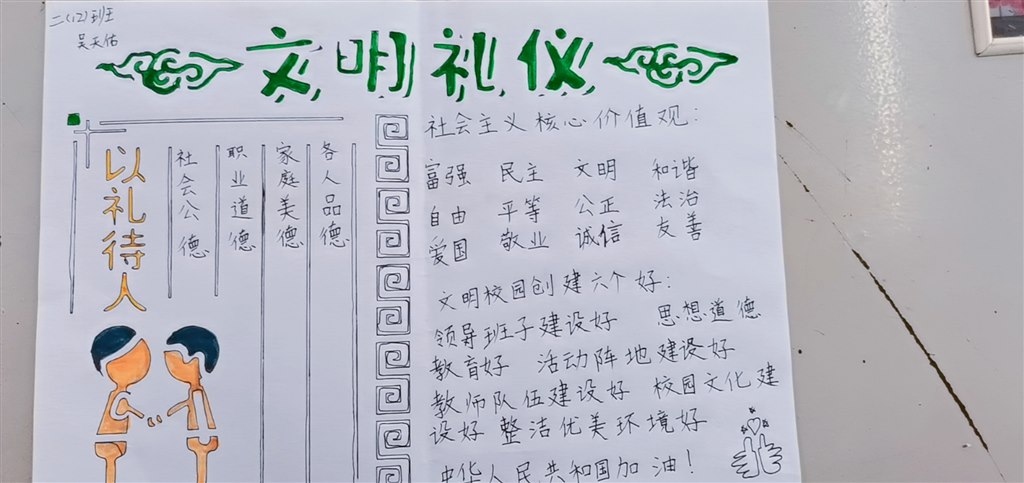 二(12)班
吴天佑
文明礼仪
以礼待人
社会公德
职业道德
家庭美德
各人品德
社会主义核心价值观:
富强 民主 文明 和谐
自由 平等 公正 法治
爱国 敬业 诚信 友善
文明校园创建六个好:
领导班子建设好 思想道德
教育好 活动阵地建设好
教师队伍建设好 校园文化建
设好 整洁优美环境好
中华人民共和国加油!